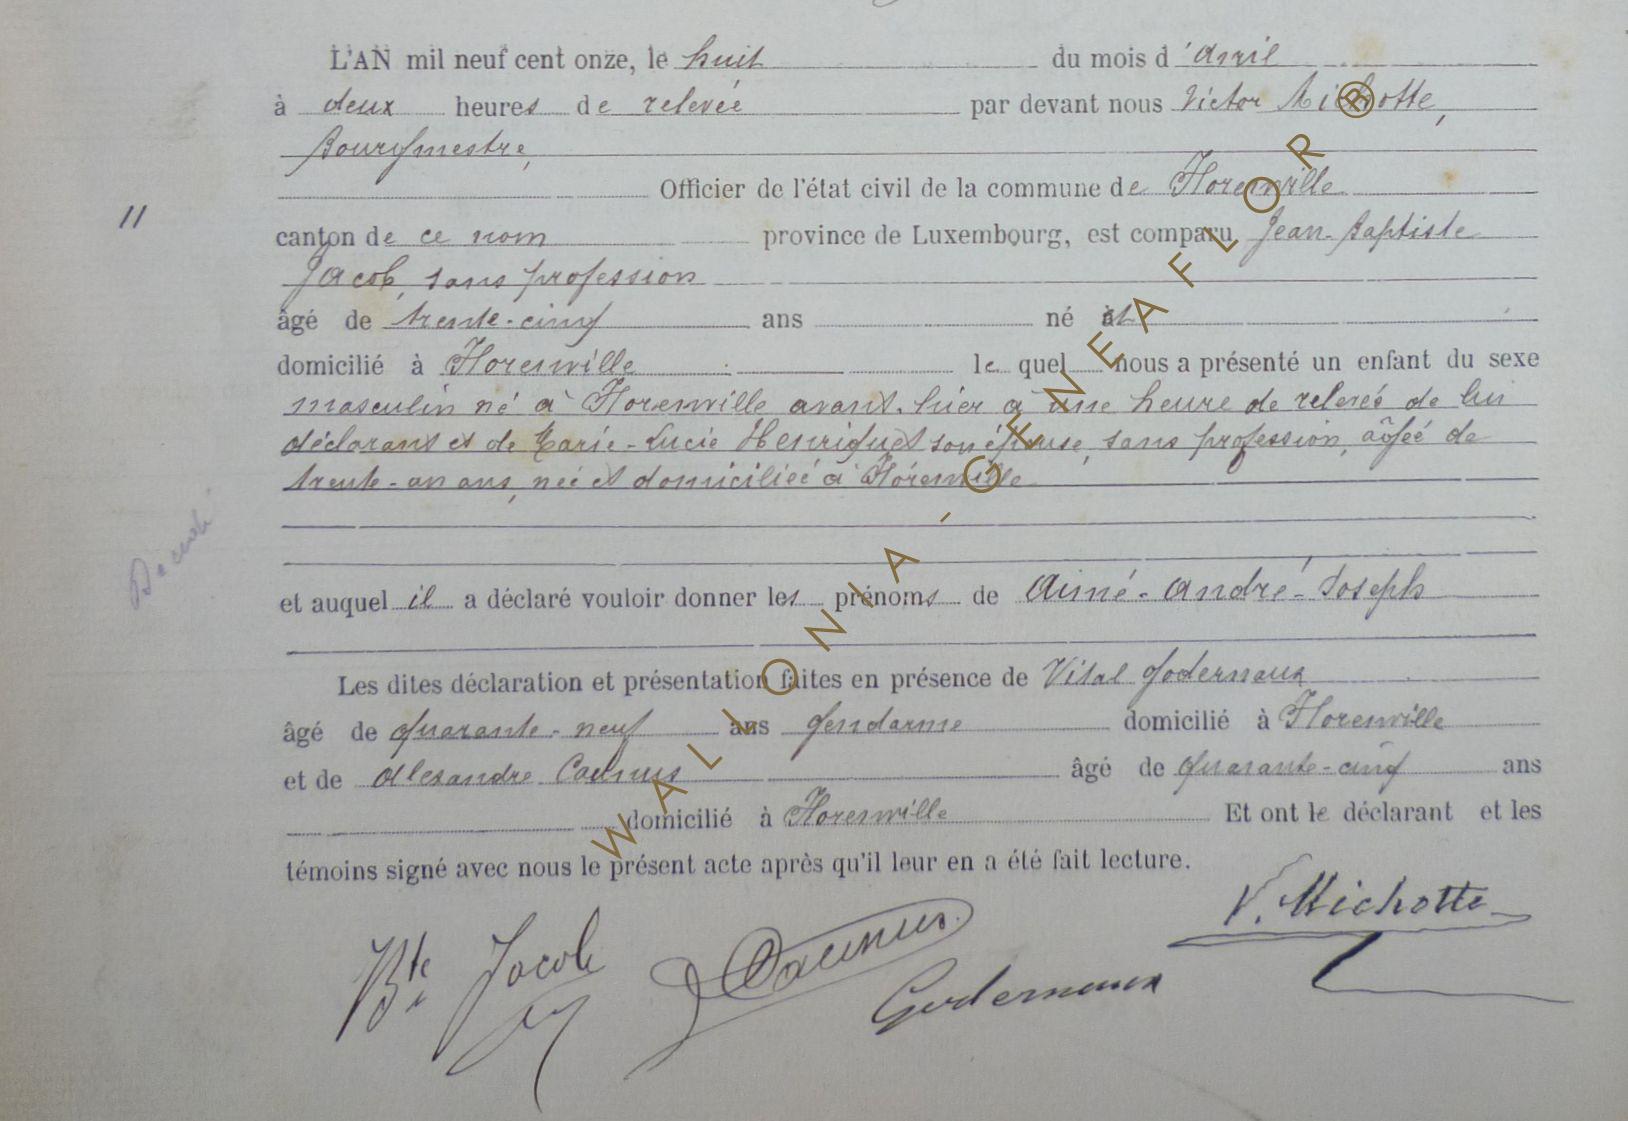 L'AN mil neuf cent onze, le huit du mois d'avril
à deux heures de relevée par devant nous Victor Michotte,
Bourgmestre,
Officier de l'état civil de la commune de Florenville
11
canton de ce nom province de Luxembourg, est comparu Jean-Baptiste
Jacob, sans profession
âgé de trente-cinq ans né et
domicilié à Florenville le quel nous a présenté un enfant du sexe
masculin né à Florenville avant-hier à une heure de relevée de lui
déclarant et de Marie-Lucie Henriquet son épouse, sans profession, âgée de
trente-un ans, née et domiciliée à Florenville
et auquel il a déclaré vouloir donner les prénoms de Aimé-André-Joseph
Les dites déclaration et présentation faites en présence de Vital Godernaux
âgé de quarante-neuf ans gendarme domicilié à Florenville
et de Alexandre Caumus âgé de quarante-cinq ans
domicilié à Florenville Et ont le déclarant et les
témoins signé avec nous le présent acte après qu'il leur en a été fait lecture.
V. Michotte
Bte Jacob
Godernaux
WALLONIA-GENEAFLOR®